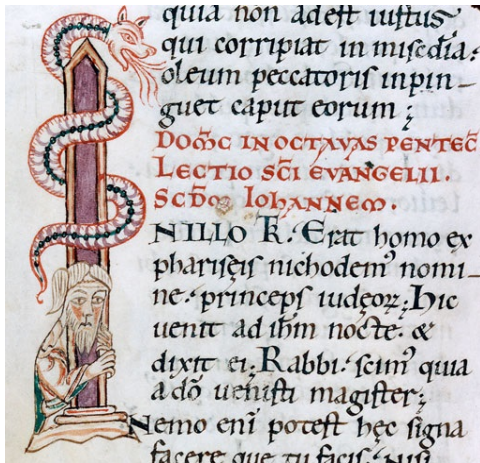 quia non adest iustus
qui corripiat in misc̄dia:
oleum peccatoris inpin–
guet caput eorum;
DOM̄C IN OCTAVAS PENTEC̄
LECTIO SC̄I EVANGELII
SCD̄M IOHANNEM.
NILLO T̄. Erat homo ex
phariseis nichodem᷒ nomi–
ne. princeps iudeoꝝ; Hic
uenit ad ih̄m nocte. &
dixit ei; Rabbi. scim᷒ quia
a dō uenisti magister;
Nemo eni potest hęc signa
facere que tu facis. nisi